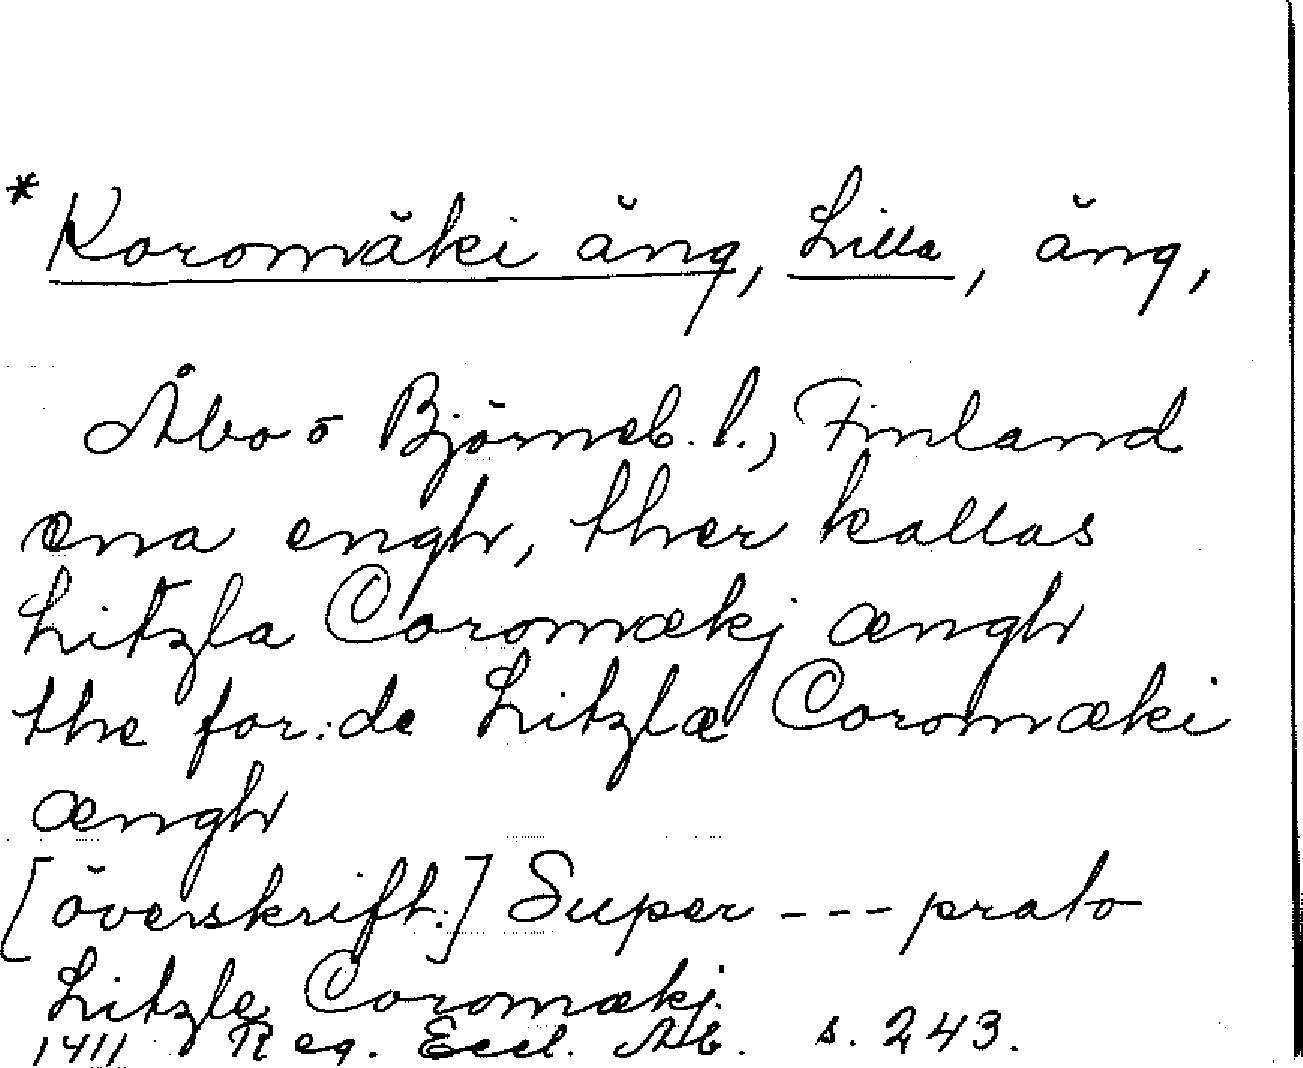 * Koromäki äng, Lilla, äng,
Åbo o Björneb. l., Finland
ena engh, ther kallas
Litzla Coromækj ængh
the for:de Litzlæ Coromæki
ængh
[överskrift:] Super --- prato
Litzle Coromækj.
1411 Reg. Eccl. Ab. s. 243.